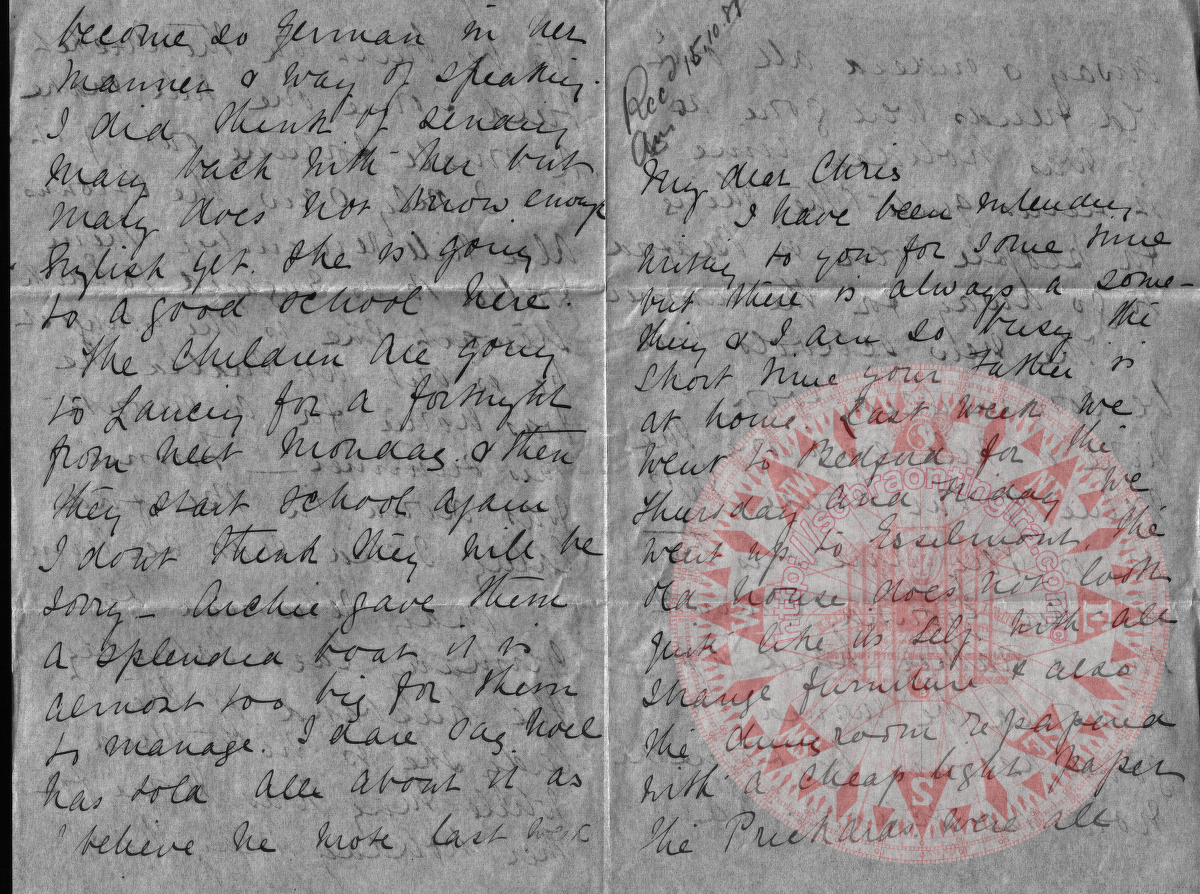 become so German in her
manner & way of speaking.
I did think of sending
Mary back with her but
Mary does not know enough
English yet. She is going
to a good school here.
The children are going
to Lancing for a fortnight
from next Monday & then
they start school again
I dont think they will be
sorry - Archie gave them
a splendid boat it is
almost too big for them
to manage. I dare say Noel
has told all about it as
I believe he wrote last week
Rec d 15,10.
Ans d
My dear Chris
I have been intending
writing to you for some time
but there is always a some-
thing & I am so busy the
short time your Father is
at home. Last week we
went to Bedford for the
Thursday and Friday we
went up to Esselmont. The
old house does not look
quite like its self with all
strange furniture & also
the dining room repapered
with a cheap light paper
The Prichards were all